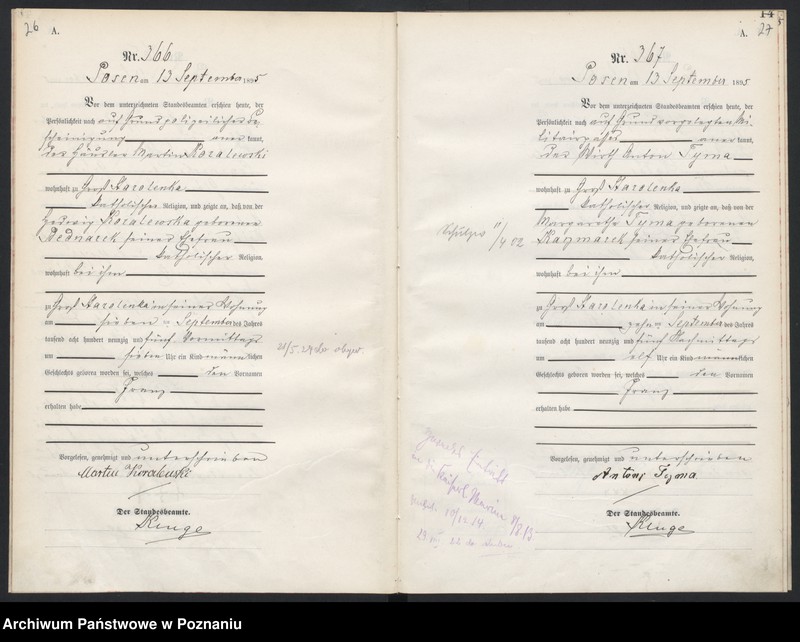 26
A.
Nr. 366.
Posen am 13 September 1895
Vor dem unterzeichneten Standesbeamten erschien heute, der
Persönlichkeit nach auf Grund polizeilicher Be
scheinigung anerkannt,
der Häusler Martin Koralewski
wohnhaft zu Groß Starolenka
katholischer Religion, und zeigte an, daß von der
Hedwig Koralewska geborenen
Bednarek seiner Ehefrau
katholischer Religion,
wohnhaft bei ihm
zu Groß Starolenka in seiner Wohnung
am sieben ten September des Jahres
tausend acht hundert neunzig und fünf Vormittags
um sieben Uhr ein Kind männlichen
Geschlechts geboren worden sei, welches den Vornamen
Franz
erhalten habe
Vorgelesen, genehmigt und unterschrieben
Martin Koralewski
Der Standesbeamte.
Kinge
27
A.
Nr. 367
Posen am 13 September 1895
Vor dem unterzeichneten Standesbeamten erschien heute, der
Persönlichkeit nach auf Grund vorgelegten Mi
litairpasses anerkannt,
der Wirth Anton Tyma
wohnhaft zu Groß Starolenka
katholischer Religion, und zeigte an, daß von der
Margarethe Tyma geborenen
Kazmarek seiner Ehefrau
katholischer Religion,
wohnhaft bei ihm
zu Groß Starolenka in seiner Wohnung
am zehn ten September des Jahres
tausend acht hundert neunzig und fünf Nachmittags
um elf Uhr ein Kind männlichen
Geschlechts geboren worden sei, welches den Vornamen
Franz
erhalten habe
Vorgelesen, genehmigt und unterschrieben
Antoni Tyma
Der Standesbeamte.
Kinge
Archiwum Państwowe w Poznaniu